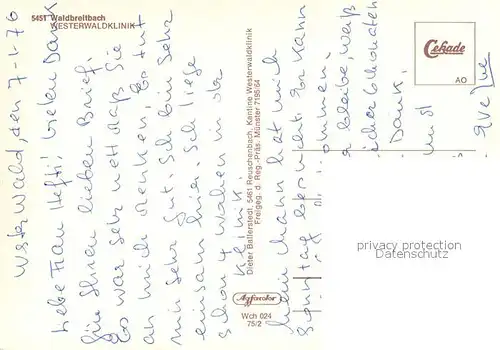 5451 Waldbreitbach
WESTERWALDKLINIK
Westerwald, den 7-1-76
Liebe Frau Hefti! Vielen Dank
für Ihren lieben Brief.
Es war sehr nett daß Sie
an mich denken, Es tut
mir sehr gut. Ich bin sehr
einsam hier. Ich liege
schon 4 Wochen in der
Klinik.
Dieter Ballerstedt, 5461 Reuschenbach, Kantine Westerwaldklinik
Freigeg. d. Reg.-Präs. Münster 7195/64
Mein Mann hat mich
Sonntag besucht. Er kann
kommen.
bleibe, weiß
Dank.
und
Cekade
AO
Agfacolor
Wch 024
75/2
privacy protected
Datenschutz